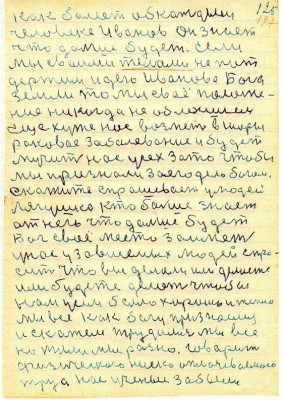 125
как болеет об каждым
человеке Иванов Он знает
что дальше будет. Если
мы своими телами не под
держим идею Иванова Бога
Земли то мы своё положе-
ние никогда не облегчим
еще хуже нас возьмет в шоры
раковое заболевание и будет
мучить нас всех За то чтобы
мы признали За его дело Богом.
Скажите спрашивает у людей
кто больше знает
от него что дальше будет
Бог своё место займет
у нас у земных людей спро-
сит что вы делали или делаете
или будете делать чтобы
нам всем было хорошо и тепло
мы все как богу признаем
и скажем трудимся мы все
но живем мы разно. Говорит
физического низко оплачиваемого
труда нас ученые забыли